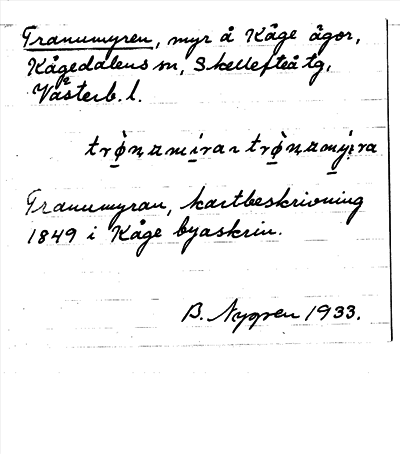 Tranumyren, myr å Kåge ägor,
Kågedalens sn, Skellefteå tg,
Västerb. l.
trø̀namíran trø̀namýra
Tranumyran, kartbeskrivning
1849 i Kåge byaskrin.
B. Nygren 1933.